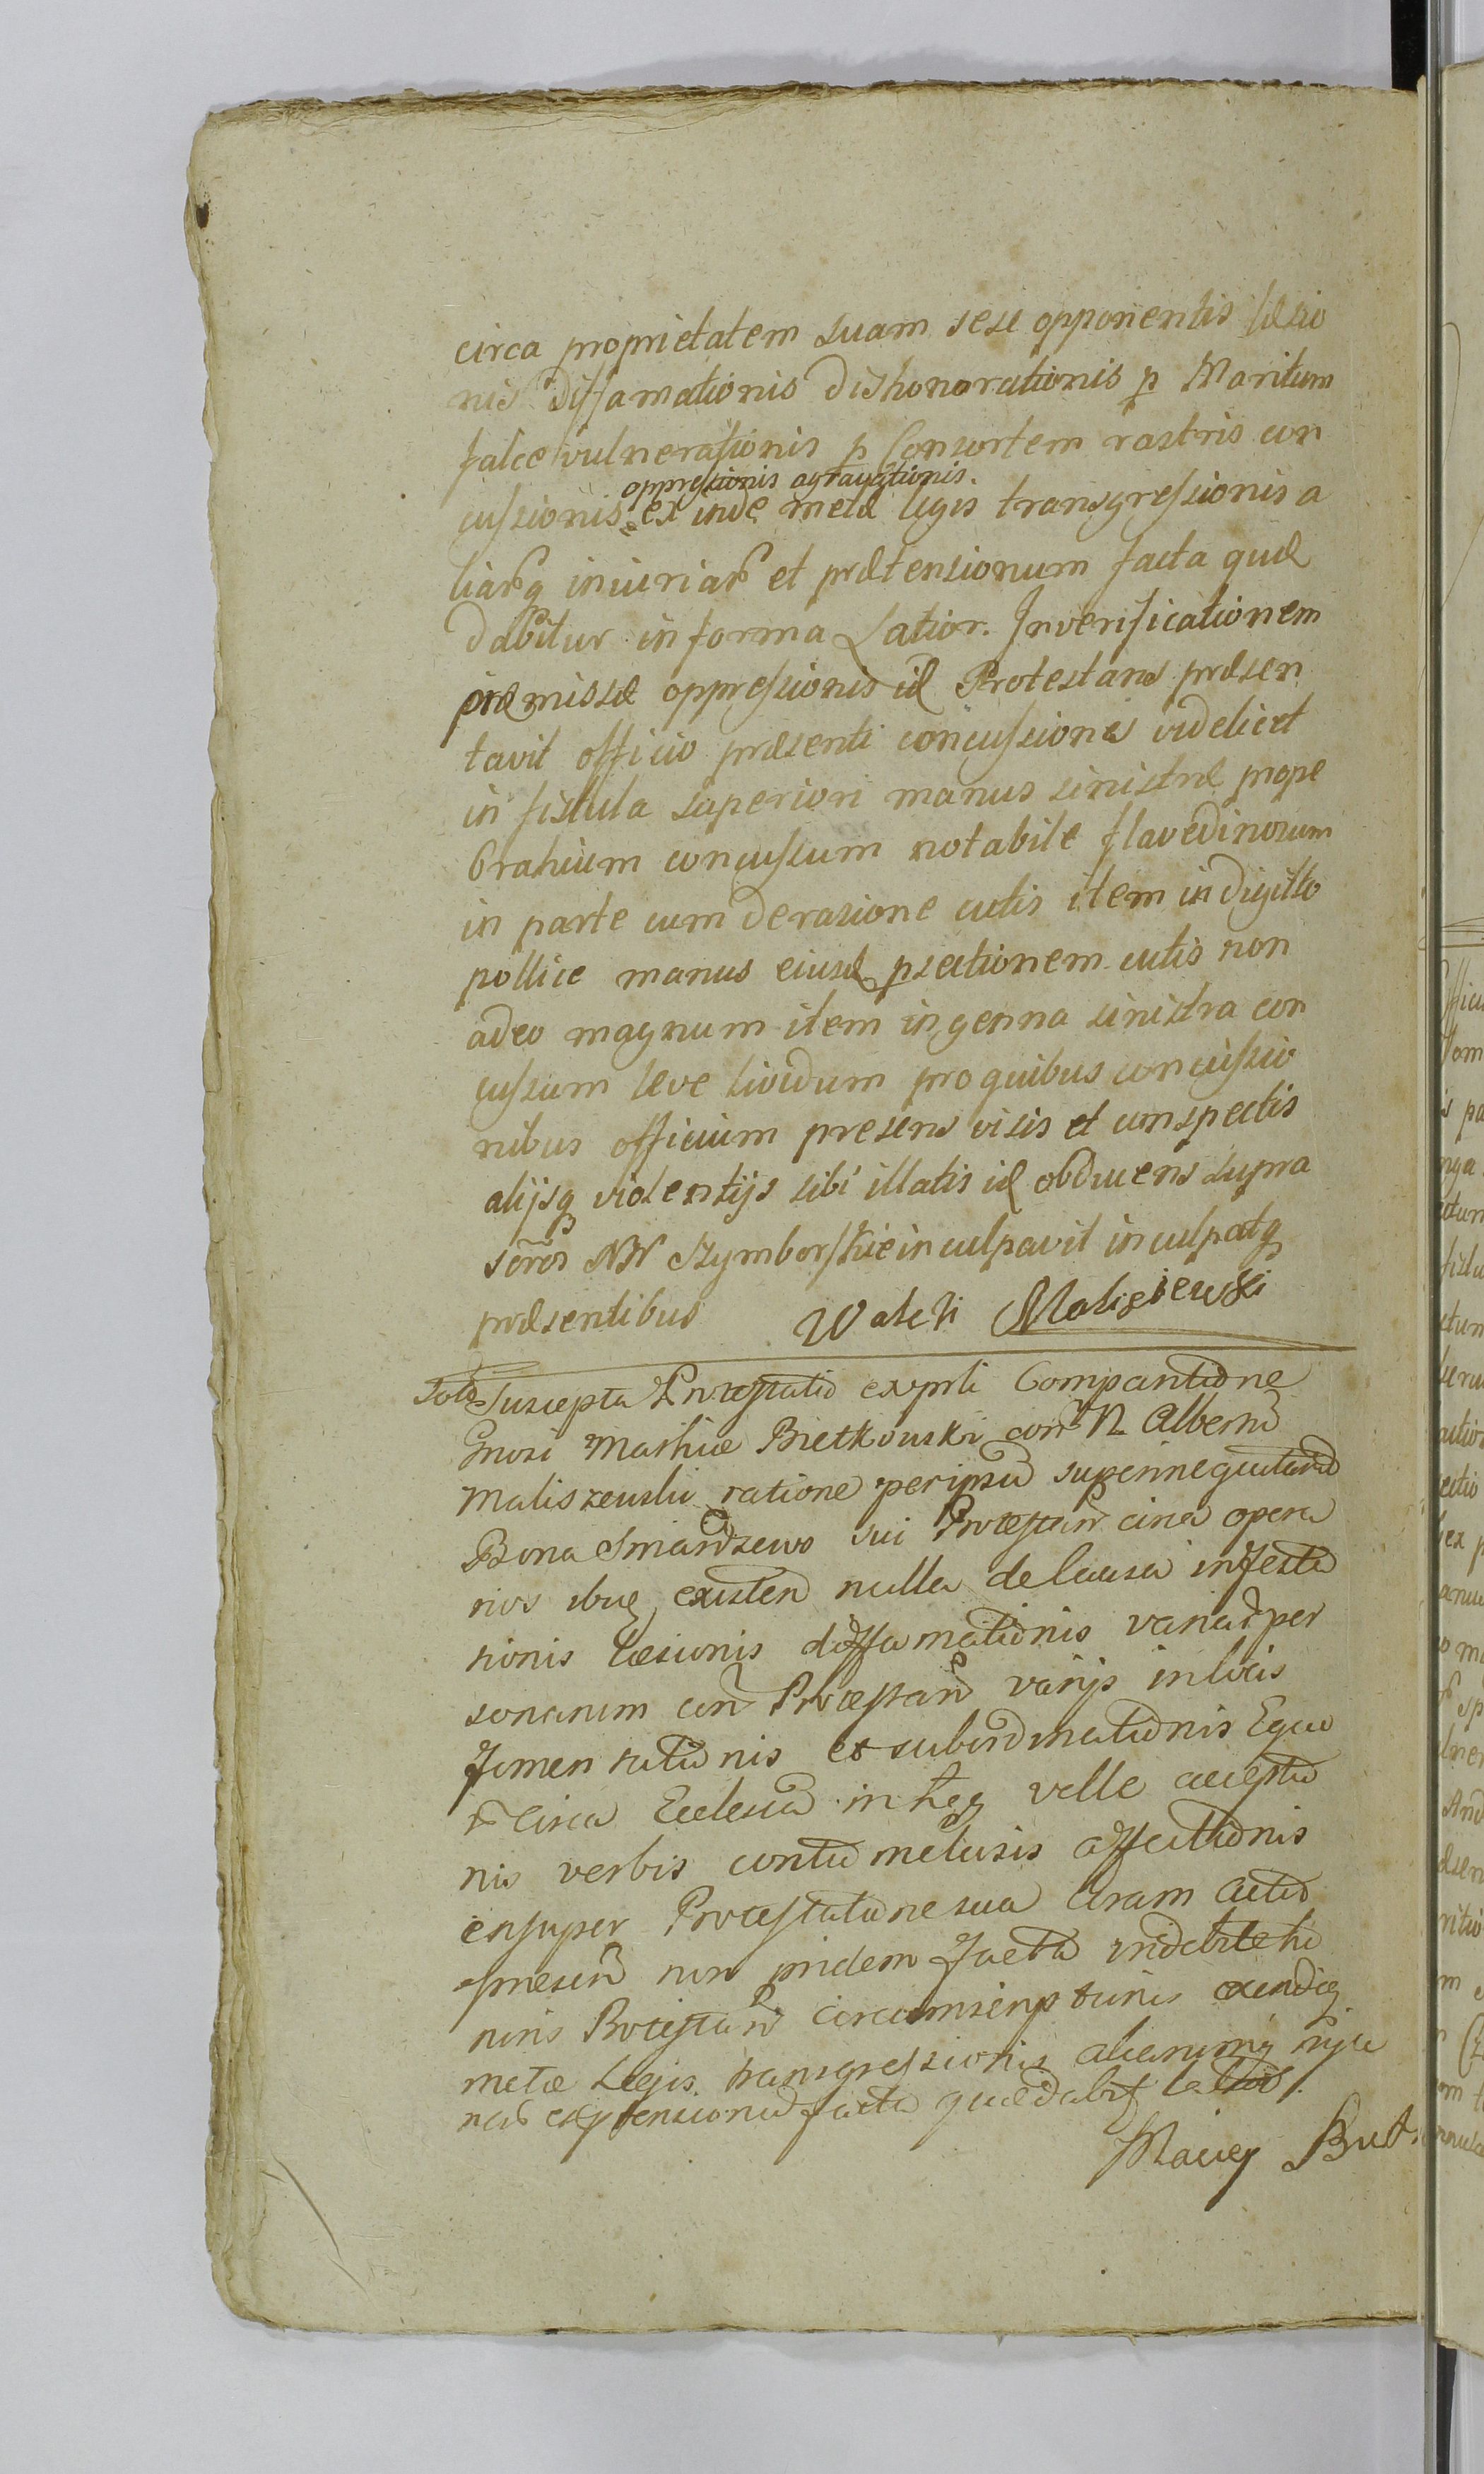 circa proprietatem suam sese opponentis læsio
nis diffamationis dishonorationis p Maritum
falce vulnerationis p Consortem rastris con
oppressionis agravationis.
cussionis ex inde metæ legis transgressionis a
liarq iniuriar et prætensionum facta quæ
dabitur in forma Latior. Inverificationem
præmissæ oppressionis id Protestans præsen
tavit officio præsenti concussiones videlicet
in fistula superiori manus sinistræ prope
brahium concussum notabile flavedinosum
in parte cum derasione cutis item in digitto
pollice manus eiusd psectionem cutis non
adeo magnum item in genna sinistra con
cussum leve lividum pro quibus concussio
nibus officium presens visis et conspectis
alijsq violentijs sibi illatis id obducens supra
scros NN Szymborskie inculpavit inculpatq
præsentibus Walęti Maliszewski
Suscepta Protestatio exprti Comparitione
Gnosi Mathiæ Bietkouski con N Albertu
Maliszewski ratione per ipsu superinequitatio
Bona Smardzewo sui Protestan circa opera
rios ibiq existen nulla de causa infesta
tionis læsionis diffamationis variar per
sonarum con Protestan varijs in locis
fomentationis et subordinationis Equo
circa Ecclesia velle accepta
nis verbis contumeliosis affectionis
ensuper Protestatione sua coram actis
presen non pridem facta indebite ho
noris Protestan circumscriptionis exindeq
metæ Legis transgressionis aliarumq injur
riar facta quæ dabit latior.
Maciey Biet